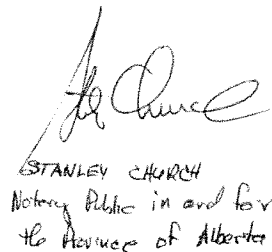 STANLEY CHURCH
Notary Public in and for
the Province of Alberta